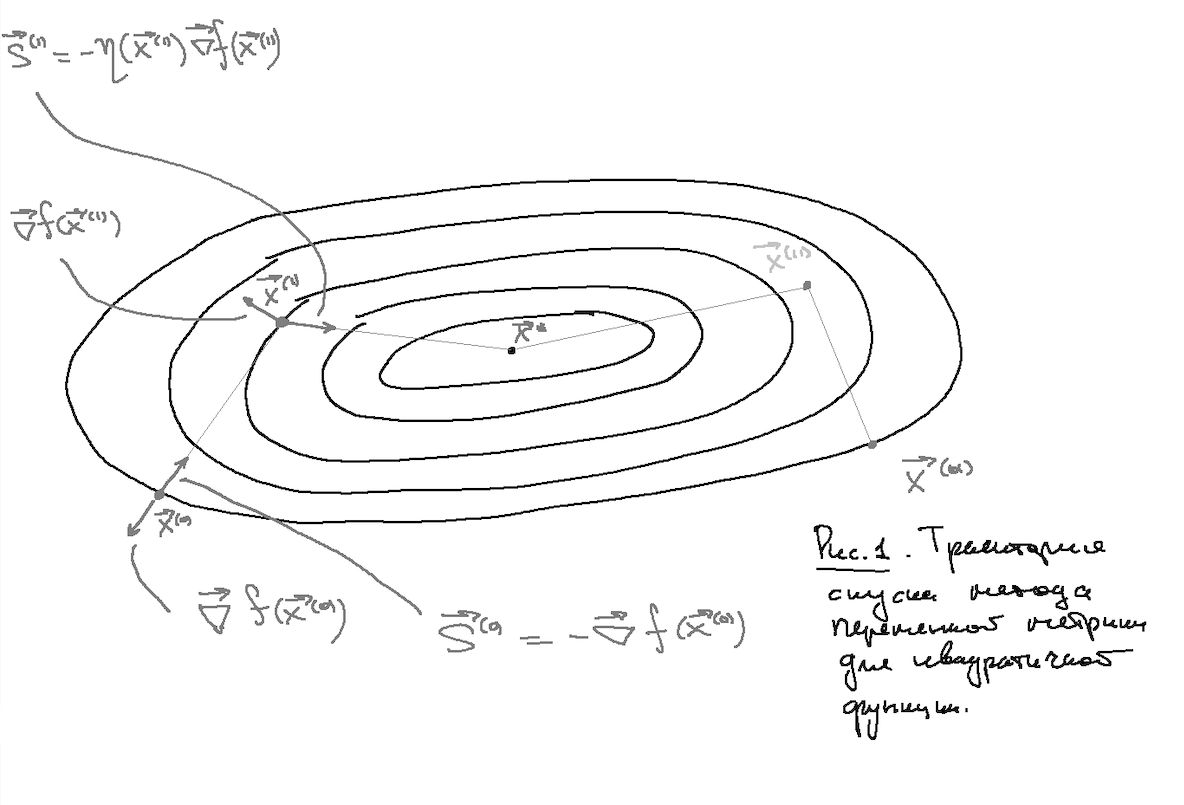 S⃗⁽¹⁾ = -η(x⃗⁽¹⁾) ∇⃗f(x⃗⁽¹⁾)
∇⃗f(x⃗⁽¹⁾)
x⃗⁽¹⁾
x⃗*
x⃗⁽¹'⁾
x⃗⁽⁰'⁾
x⃗⁽⁰⁾
∇⃗ f(x⃗⁽⁰⁾)
S⃗⁽⁰⁾ = -∇⃗ f(x⃗⁽⁰⁾)
Рис. 1. Траектория
спуска метода
переменной метрики
для квадратичной
функции.